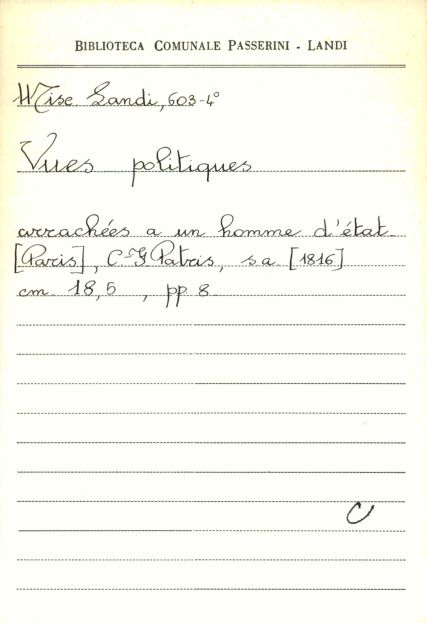 BIBLIOTECA COMUNALE PASSERINI - LANDI
Misc. Landi, 603-4°
Vues politiques
arrachées a un homme d'état
[Paris], C-F Patris, s.a. [1816]
cm. 18,5 , pp 8
C